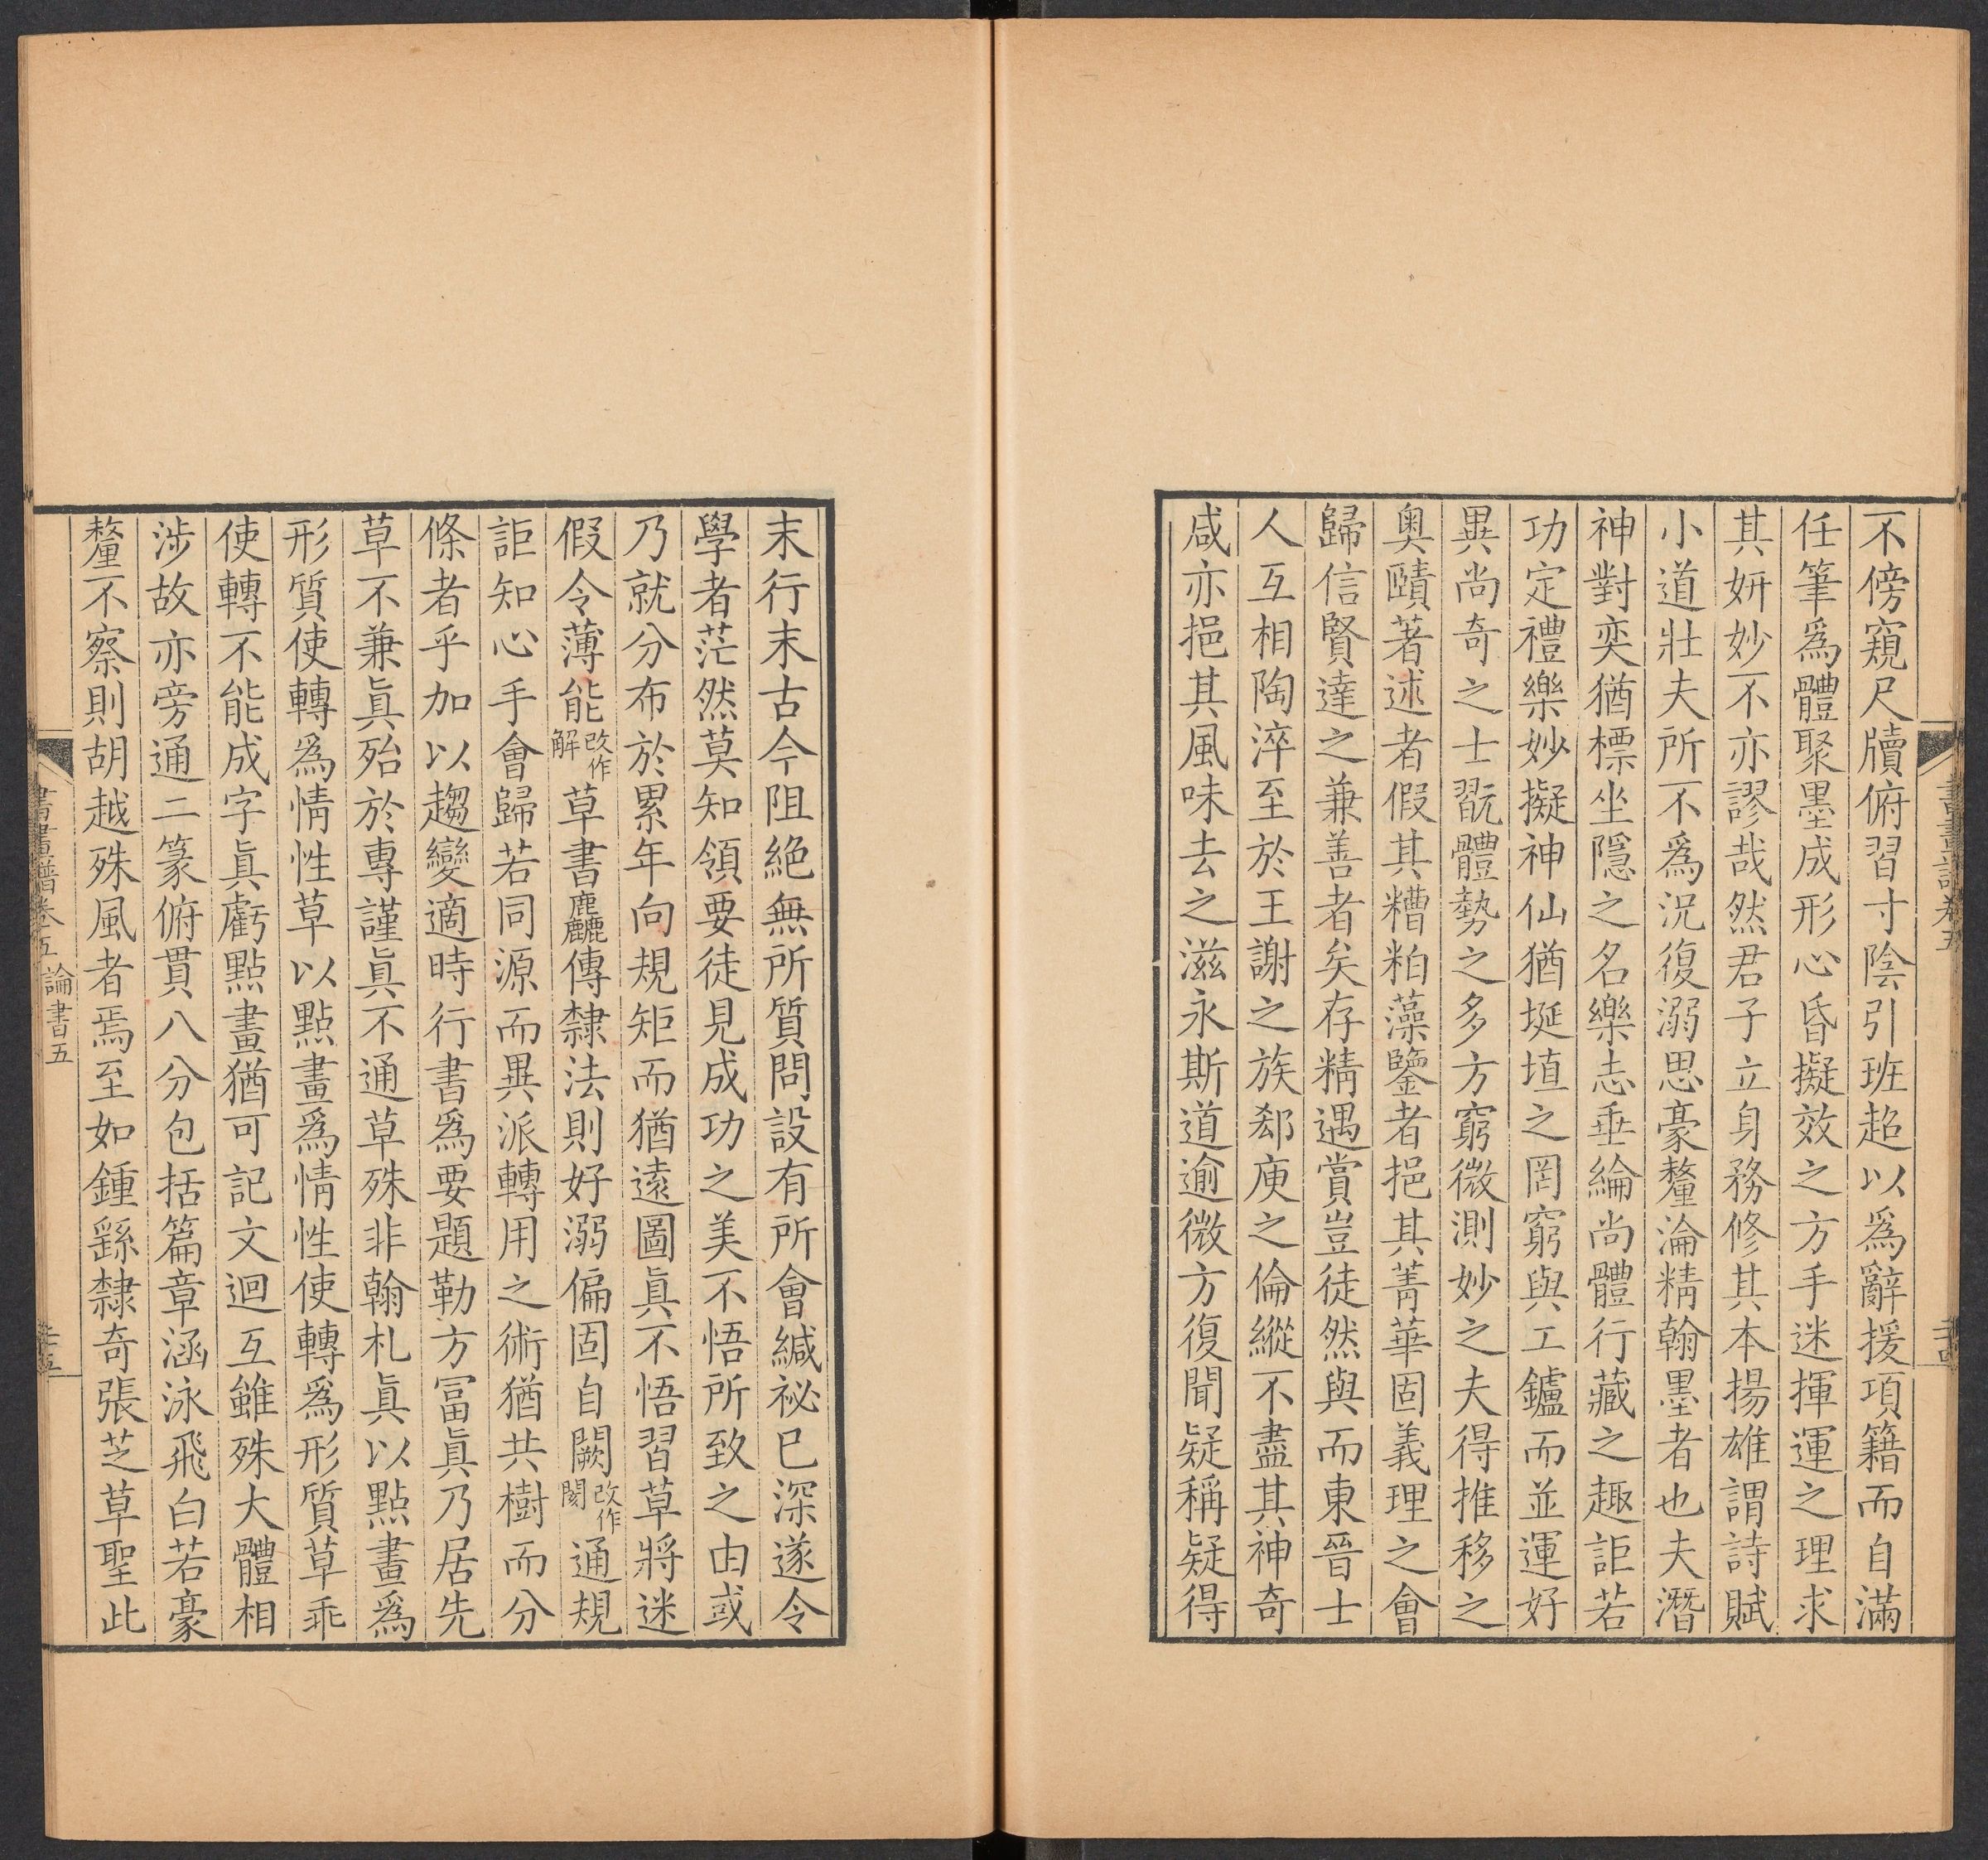 不傍窺尺牘俯習寸陰引班超以爲辭援項籍而自滿
任筆爲體聚墨成形心昏擬效之方手迷揮運之理求
其妍妙不亦謬哉然君子立身務修其本揚雄謂詩賦
小道壯夫所不爲況復溺思豪釐淪精翰墨者也夫潛
神對奕猶標坐隱之名樂志垂綸尚體行藏之趣詎若
功定禮樂妙擬神仙猶埏埴之罔窮與工鑪而並運好
異尚奇之士翫體勢之多方窮微測妙之夫得推移之
奥賾著述者假其糟粕藻鑒者挹其菁華固義理之會
歸信賢達之兼善者矣存精遇賞豈徒然與而東晉士
人互相陶淬至於王謝之族郄庾之倫縱不盡其神奇
咸亦挹其風味去之滋永斯道逾微方復聞疑稱疑得
末行末古今阻絶無所質問設有所會緘祕已深遂令
學者茫然莫知領要徒見成功之美不悟所致之由或
乃就分布於累年向規矩而猶遠圖眞不悟習草將迷
假令薄能改作解草書麤傳隸法則好溺偏固自闕改作閡通規
詎知心手會歸若同源而異派轉用之術猶共樹而分
條者乎加以趨變適時行書爲要題勒方冨眞乃居先
草不兼眞殆於專謹眞不通草殊非翰札眞以點畫爲
形質使轉爲情性草以點畫爲情性使轉爲形質草乖
使轉不能成字眞虧點畫猶可記文迴互雖殊大體相
涉故亦旁通二篆俯貫八分包括篇章涵泳飛白若豪
釐不察則胡越殊風者焉至如鍾繇隸奇張芝草聖此
書畫譜卷五 論書五